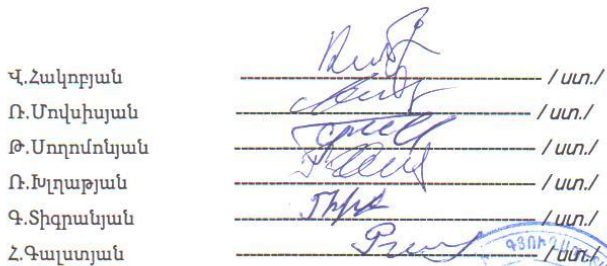 Վ.Հակոբյան / ստ./
Ռ.Մովսիսյան / ստ./
Թ.Սողոմոնյան / ստ./
Ռ.Խլղաթյան / ստ./
Գ.Տիգրանյան / ստ./
Զ.Գալստյան / ստ./